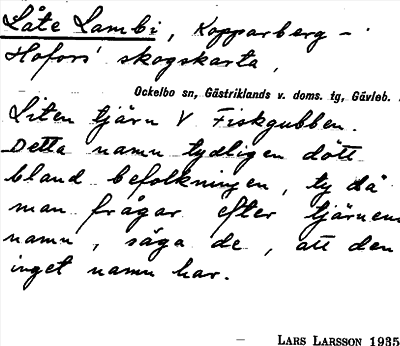 Låte Lambi, Kopparberg -
Hofors' skogskarta,
Ockelbo sn, Gästriklands v. doms. tg, Gävleb.
Liten tjärn V Fiskgubben.
Detta namn tydligen dött
bland befolkningen, ty då
man frågar efter tjärnens
namn, säga de, att den
inget namn har.
LARS LARSSON 1935